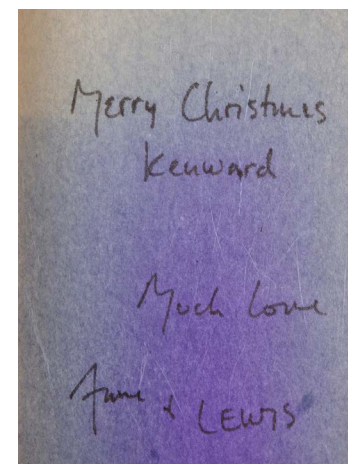 Merry Christmas
Kenward
Much Love
Anne & LEWIS